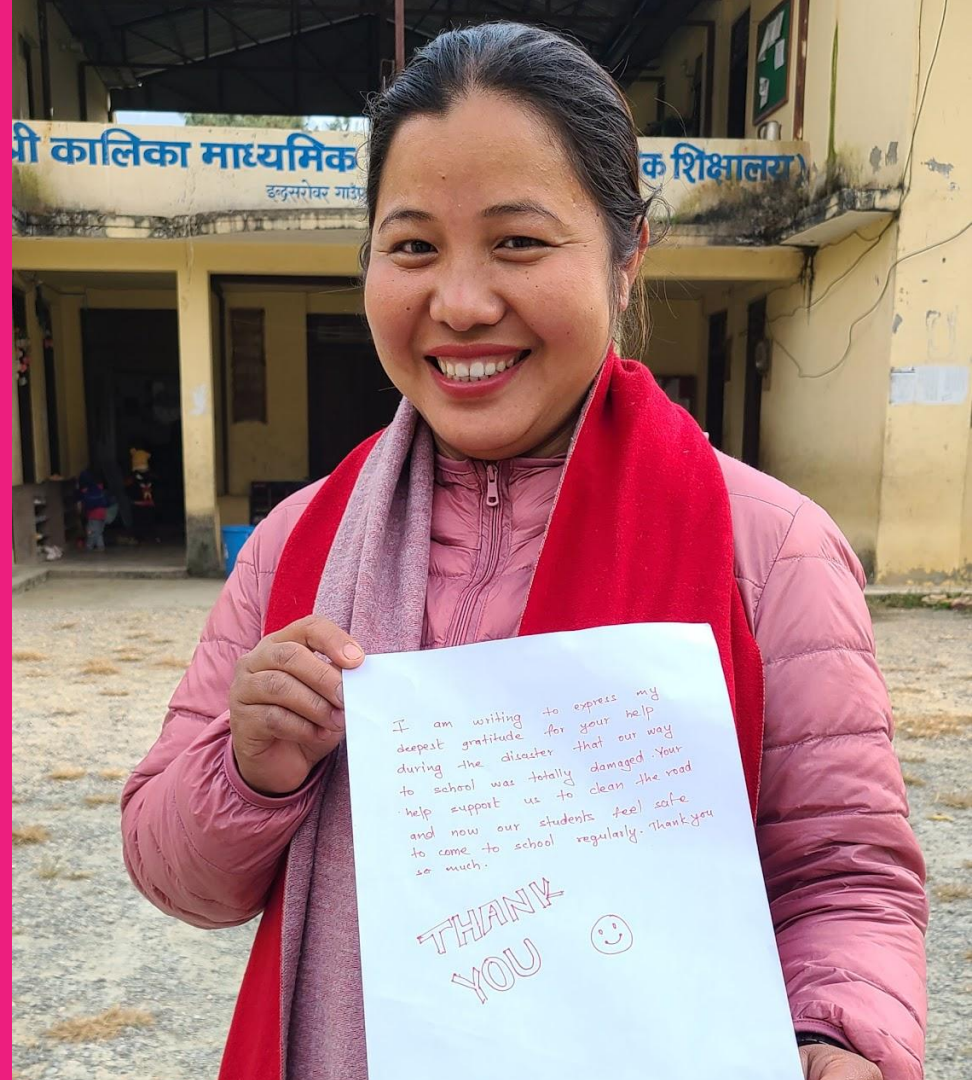 श्री कालिका माध्यमिक क शिक्षालय)
इन्द्रसरोवर
I am writing to express my
deepest gratitude for your help
during the disaster that our way
to school was totally damaged. Your
help support us to clean the road
and now our students feel safe
to come to school regularly. Thank you
so much.
THANK
YOU